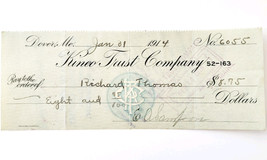 Dover, Me. Jan 31 1914 No. 6055
Kineo Trust Company 52-163
Pay to the order of Richard Thomas $8.75
Eight and Dollars